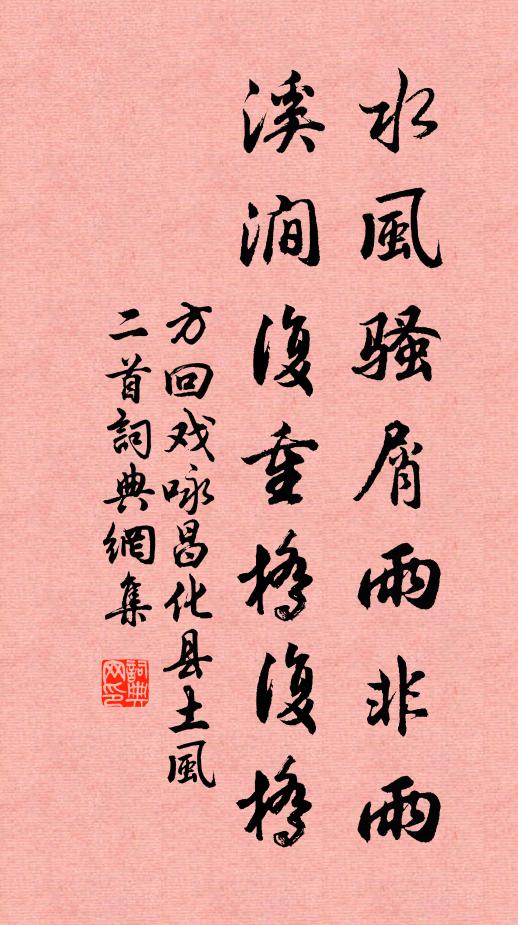 水風騷屑雨非雨
溪澗復重橋復橋
方回戏咏昌化县土風
二首詞典網集
詞典
网印